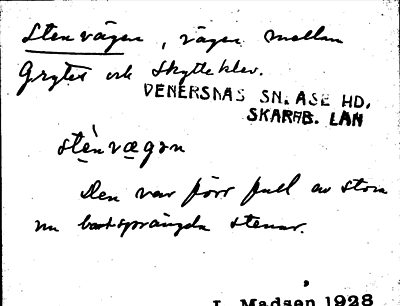 Stenvägen, vägen mellan
Grytet och Skytteklev.
VENERSNAS SN. ASE HD.
SKARAB. LAN
stènvægən
Den var förr full av stora
nu bortsprängda stenar.
L. Madsen 1928